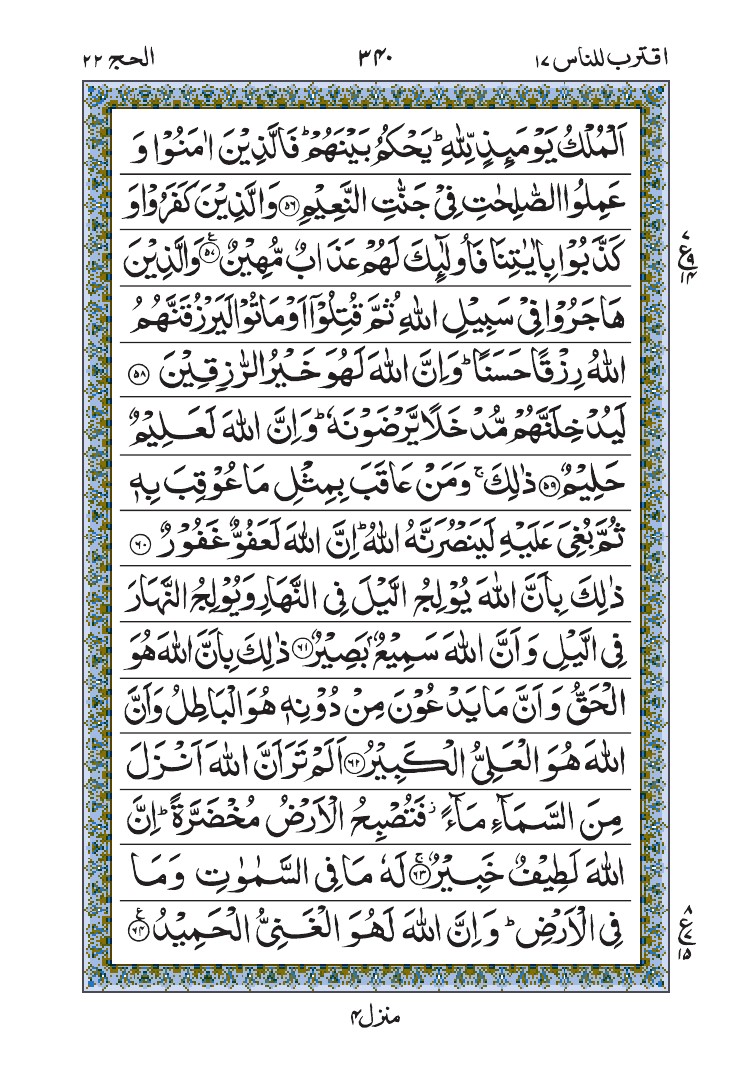 اقترب للناس ۱۷
۳۴۰
الحج ۲۲
اَلْمُلْكُ يَوْمَئِذٍ لِّلّٰهِ ؕ يَحْكُمُ بَيْنَهُمْ ؕ فَالَّذِيْنَ اٰمَنُوْا وَ
عَمِلُوا الصّٰلِحٰتِ فِيْ جَنّٰتِ النَّعِيْمِ ﴿۵۶﴾ وَالَّذِيْنَ كَفَرُوْا وَ
كَذَّبُوْا بِاٰيٰتِنَا فَاُولٰٓئِكَ لَهُمْ عَذَابٌ مُّهِيْنٌ ﴿۵۷﴾ وَالَّذِيْنَ
ع
۷
۹
۱۴
هَاجَرُوْا فِيْ سَبِيْلِ اللّٰهِ ثُمَّ قُتِلُوْۤا اَوْ مَاتُوْا لَيَرْزُقَنَّهُمُ
اللّٰهُ رِزْقًا حَسَنًا ؕ وَاِنَّ اللّٰهَ لَهُوَ خَيْرُ الرّٰزِقِيْنَ ﴿۵۸﴾
لَيُدْخِلَنَّهُمْ مُّدْخَلًا يَّرْضَوْنَهٗ ؕ وَاِنَّ اللّٰهَ لَعَلِيْمٌ
حَلِيْمٌ ﴿۵۹﴾ ذٰلِكَ ۚ وَمَنْ عَاقَبَ بِمِثْلِ مَا عُوْقِبَ بِهٖ
ثُمَّ بُغِيَ عَلَيْهِ لَيَنْصُرَنَّهُ اللّٰهُ ؕ اِنَّ اللّٰهَ لَعَفُوٌّ غَفُوْرٌ ﴿۶۰﴾
ذٰلِكَ بِاَنَّ اللّٰهَ يُوْلِجُ الَّيْلَ فِي النَّهَارِ وَيُوْلِجُ النَّهَارَ
فِي الَّيْلِ وَاَنَّ اللّٰهَ سَمِيْعٌۢ بَصِيْرٌ ﴿۶۱﴾ ذٰلِكَ بِاَنَّ اللّٰهَ هُوَ
الْحَقُّ وَاَنَّ مَا يَدْعُوْنَ مِنْ دُوْنِهٖ هُوَ الْبَاطِلُ وَاَنَّ
اللّٰهَ هُوَ الْعَلِيُّ الْكَبِيْرُ ﴿۶۲﴾ اَلَمْ تَرَ اَنَّ اللّٰهَ اَنْزَلَ
مِنَ السَّمَآءِ مَآءً ز فَتُصْبِحُ الْاَرْضُ مُخْضَرَّةً ؕ اِنَّ
اللّٰهَ لَطِيْفٌ خَبِيْرٌ ﴿۶۳﴾ لَهٗ مَا فِي السَّمٰوٰتِ وَمَا
فِي الْاَرْضِ ؕ وَاِنَّ اللّٰهَ لَهُوَ الْغَنِيُّ الْحَمِيْدُ ﴿۶۴﴾
ع
۸
۷
۱۵
منزل ۴